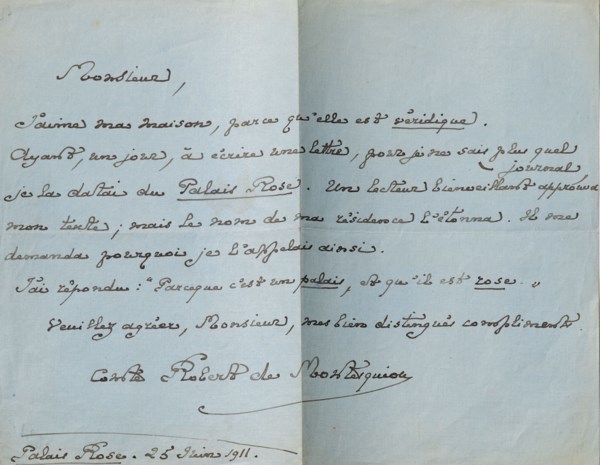 Monsieur,
J'aime ma maison, parce qu'elle est véridique.
Ayant, un jour, à écrire une lettre, pour je ne sais plus quel
journal,
je la datai du Palais Rose. Un lecteur bienveillant approuva
mon texte ; mais le nom de ma résidence l'étonna. Il me
demanda pourquoi je l'appelais ainsi.
J'ai répondu : "Parceque c'est un palais, et qu'il est rose. "
Veuillez agréer, Monsieur, mes bien distingués compliments
Comte Robert de Montesquiou
Palais Rose. 25 Juin 1911.